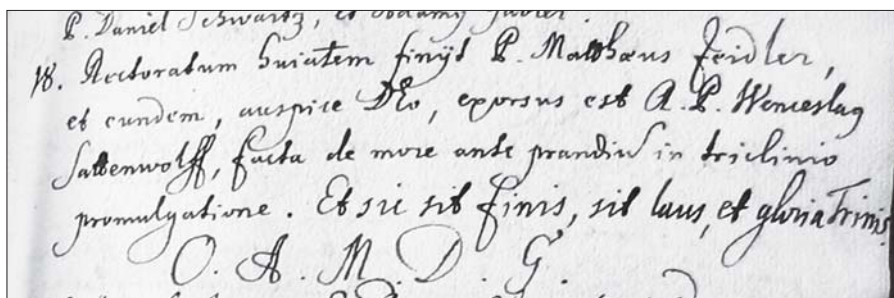 P. Daniel Schwartz, et Adamy
18. Rectoratum huiatem finijt P. Matthæus Zeidler,
et eundem, auspice DEo, exorsus est A. P. Wenceslaus
Sattenwolff, facta de more ante prandiũ in triclinio
promulgatione. Et sic sit finis, sit laus, et gloria Trinis.
O. A. M. D. G.